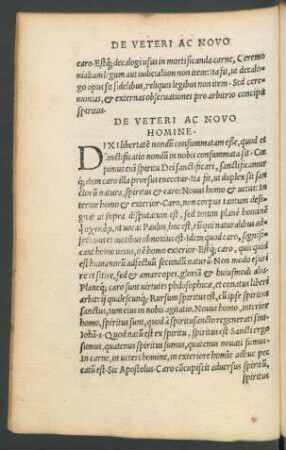 DE VETERI AC NOVO
caro. Estq; decalogi usus in mortificanda carne, Ceremo
nialium legum aut iudicialium non item. Ita fit, ut decalo-
go opus sit fidelibus, reliquis legibus non item. Sed cere-
monias, & externas observationes pro arbitrio concipit
spiritus.
DE VETERI AC NOVO
HOMINE.
DIXI libertatē nondū consummatam esse, quod et
sanctificatio nondū in nobis consummata sit. Cœ
pimus enī spiritu Dei sanctificari, sanctificamur
q;, dum caro illa prorsus enecetur. Ita fit, ut duplex sit san
ctorū natura, spiritus & caro: Novus homo & vetus: In
terior homo & exterior. Caro, non corpus tantum desig-
nat, ut supra disputatum est, sed totum planè hominē
ψυχικὸν, ut vocat Paulus, hoc est, eū qui naturalibus ad-
fectibus et motibus obnoxius est. Idem quod caro, signifi-
cant homo vetus, nō homo exterior. Estq; caro, quod
est humanorū adfectuū secundū naturā. Non modo esu
rire et sitire, sed & amare opes, gloriā & huiusmodi alia.
Planeq; caro sunt virtutes philosophicæ, et conatus liberi
arbitrij quilescunq;. Rursum spiritus est, cū ipse spiritus
sanctus, tum eius in nobis agitatio. Novus homo, interior
homo, spiritus sunt, quod à spiritu sancto regenerati sint.
Iohā. 3. Quod natū est ex spiritu, spiritus est. Sancti ergo
sumus, quatenus spiritus sumus, quatenus novati sumus.
In carne, in veteri homine, in exteriore homine adhuc pec
catū est. Sic Apostolus. Caro cōcupiscit adversus spiritū,
spiritus